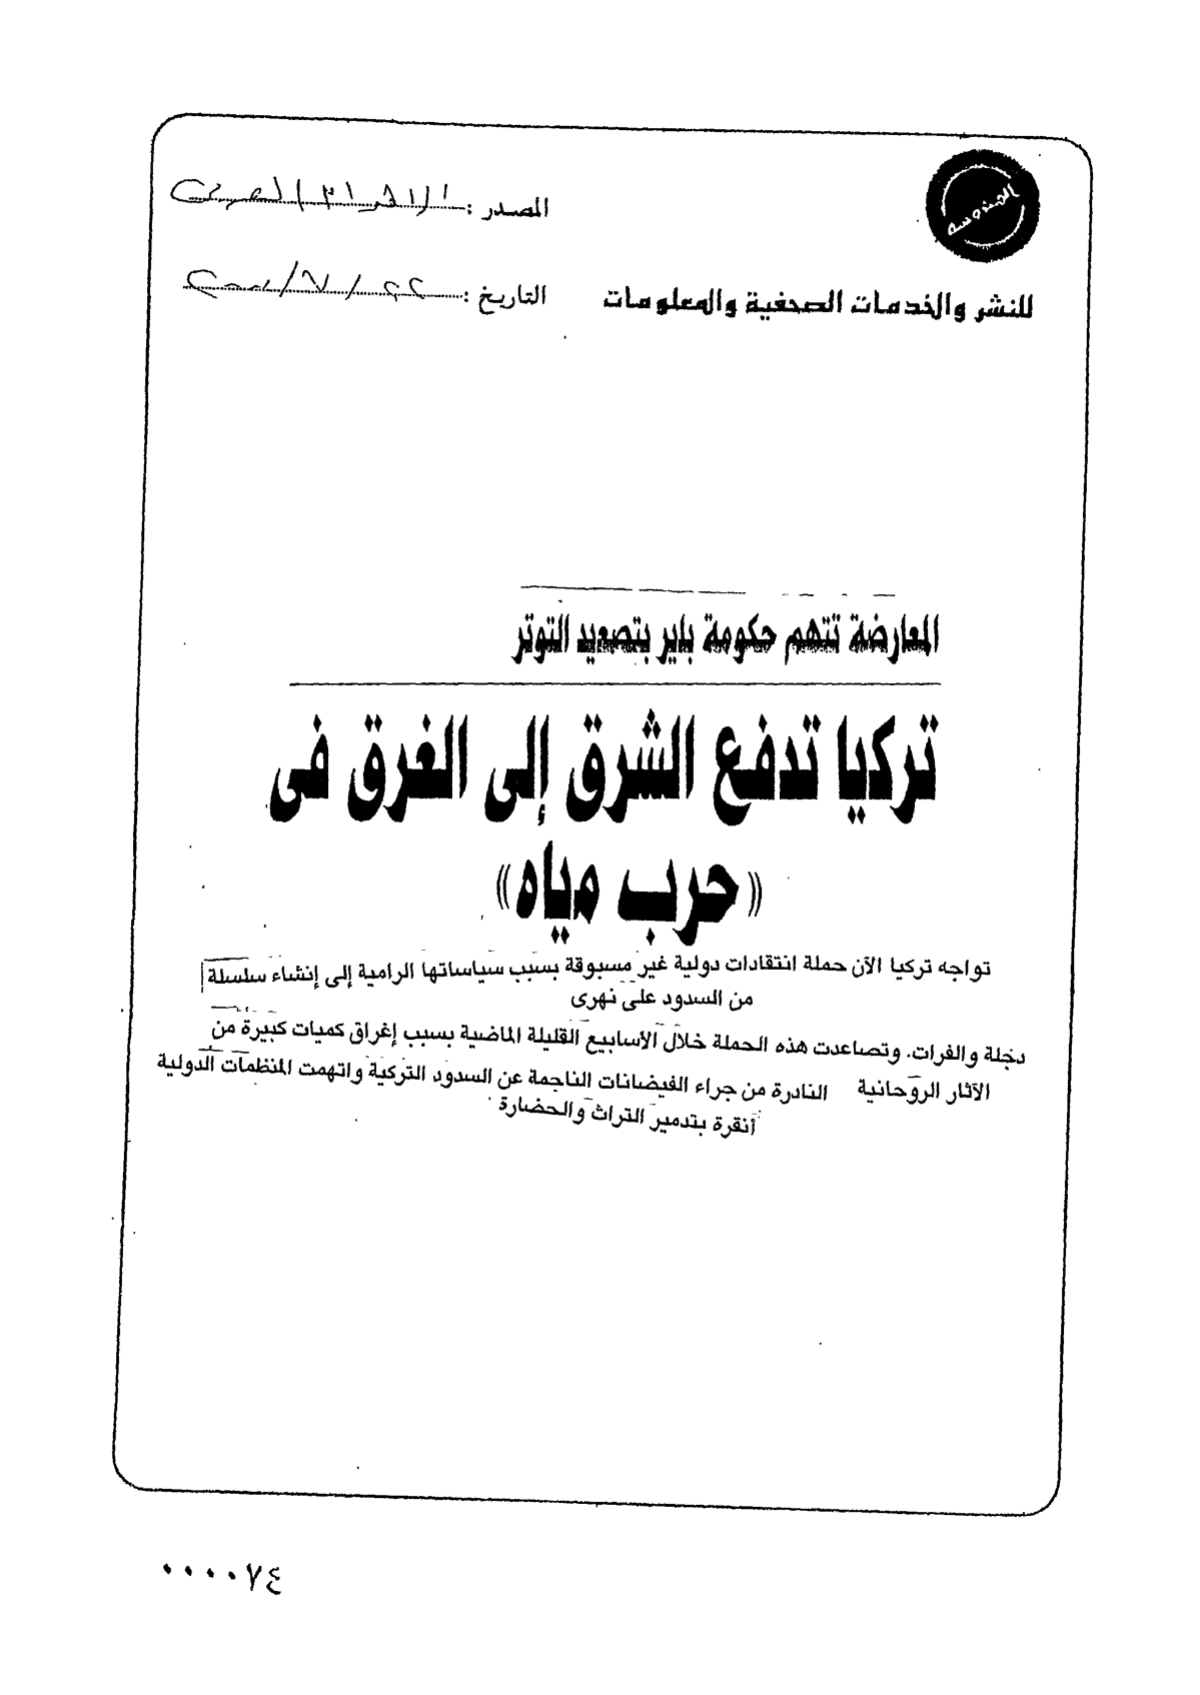 المحروسة
المصدر : الاهرام العربى
للنشر والخدمات الصحفية والمعلومات
التاريخ :
المعارضة تتهم حكومة باير بتصعيد التوتر
تركيا تدفع الشرق إلى الغرق فى
«حرب مياه»
تواجه تركيا الآن حملة انتقادات دولية غير مسبوقة بسبب سياساتها الرامية إلى إنشاء سلسلة
من السدود على نهرى
دجلة والفرات. وتصاعدت هذه الحملة خلال الأسابيع القليلة الماضية بسبب إغراق كميات كبيرة من
الآثار الروحانية النادرة من جراء الفيضانات الناجمة عن السدود التركية واتهمت المنظمات الدولية
أنقرة بتدمير التراث والحضارة
٠٠٠٠٧٤